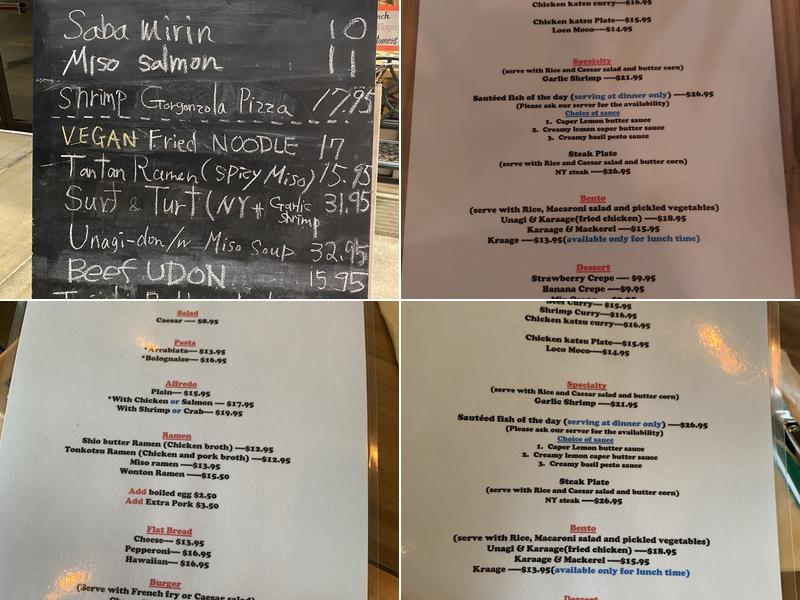 Saba Mirin 10
Miso salmon 11
Shrimp Gorgonzola Pizza 17.95
VEGAN Fried NOODLE 17
Tantan Ramen (Spicy Miso) 15.95
Surf & Turf (NY + Garlic Shrimp 31.95
Unagi-don /w Miso Soup 32.95
Beef UDON 15.95
Chicken katsu curry—$16.95
Chicken katsu Plate—$15.95
Loco Moco—$14.95
Specialty
(serve with Rice and Caesar salad and butter corn)
Garlic Shrimp —$21.95
Sautéed fish of the day (serving at dinner only) —$26.95
(Please ask our server for the availability)
Choice of sauce
1. Caper Lemon butter sauce
2. Creamy lemon caper butter sauce
3. Creamy basil pesto sauce
Steak Plate
(serve with Rice and Caesar salad and butter corn)
NY steak —$26.95
Bento
(serve with Rice, Macaroni salad and pickled vegetables)
Unagi & Karaage(fried chicken) —$18.95
Karaage & Mackerel —$15.95
Kraage —$13.95(available only for lunch time)
Dessert
Strawberry Crepe — $9.95
Banana Crepe —$9.95
Salad
Caesar — $8.95
Pasta
*Arrabiata— $13.95
*Bolognaise— $16.95
Alfredo
Plain— $15.95
*With Chicken or Salmon — $17.95
With Shrimp or Crab— $19.95
Ramen
Shio butter Ramen (Chicken broth) —$12.95
Tonkotsu Ramen (Chicken and pork broth) —$12.95
Miso ramen —$13.95
Wonton Ramen —$15.50
Add boiled egg $2.50
Add Extra Pork $3.50
Flat Bread
Cheese— $13.95
Pepperoni— $16.95
Hawaiian— $16.95
Burger
(Serve with French fry or Caesar salad)
Beef Curry— $15.95
Shrimp Curry—$16.95
Chicken katsu curry—$16.95
Chicken katsu Plate—$15.95
Loco Moco—$14.95
Specialty
(serve with Rice and Caesar salad and butter corn)
Garlic Shrimp —$21.95
Sautéed fish of the day (serving at dinner only) —$26.95
(Please ask our server for the availability)
Choice of sauce
1. Caper Lemon butter sauce
2. Creamy lemon caper butter sauce
3. Creamy basil pesto sauce
Steak Plate
(serve with Rice and Caesar salad and butter corn)
NY steak —$26.95
Bento
(serve with Rice, Macaroni salad and pickled vegetables)
Unagi & Karaage(fried chicken) —$18.95
Karaage & Mackerel —$15.95
Kraage —$13.95(available only for lunch time)
Dessert